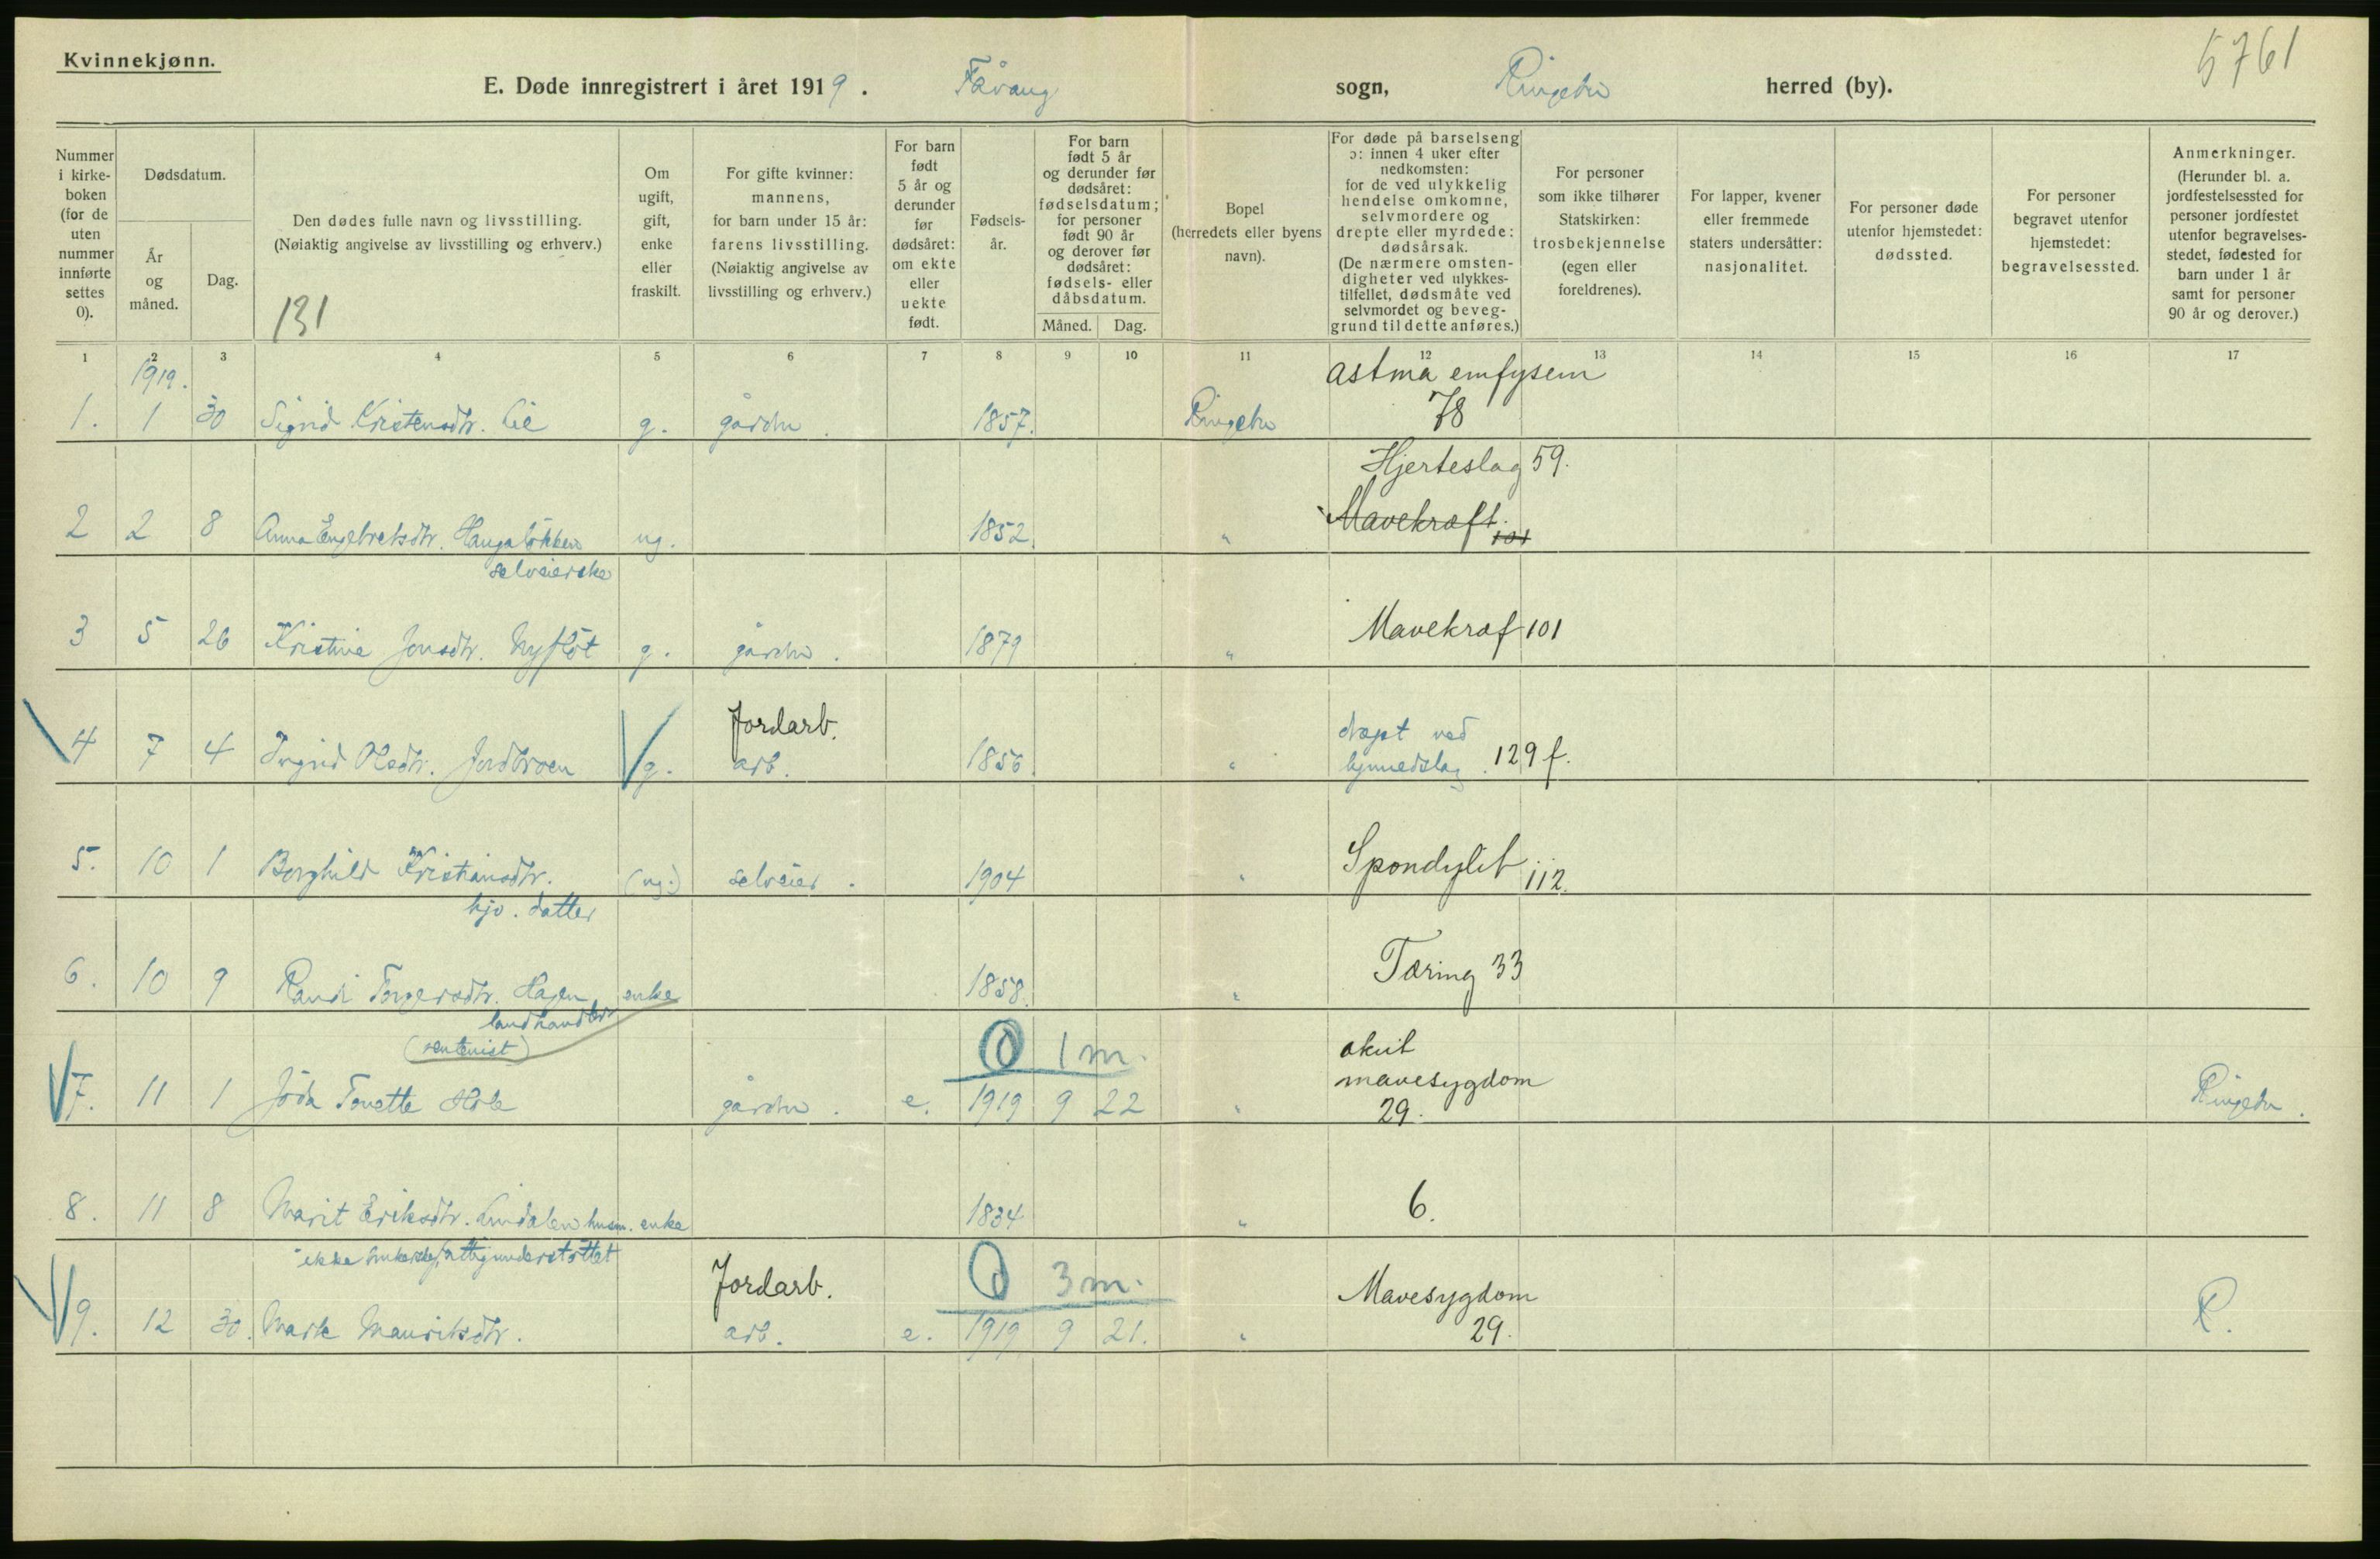 Kvinnekjønn.
5761
E. Døde innregistrert i året 1919. Fåvang sogn, Ringebu herred (by).
Nummer i kirkeboken (for de uten nummer innførte settes 0).
Dødsdatum.
År og måned.
Dag.
Den dødes fulle navn og livsstilling.
(Nøiaktig angivelse av livsstilling og erhverv.)
131
Om ugift, gift, enke eller fraskilt.
For gifte kvinner: mannens, for barn under 15 år: farens livsstilling. (Nøiaktig angivelse av livsstilling og erhverv.)
For barn født 5 år og derunder før dødsåret: om ekte eller uekte født.
Fødselsår.
For barn født 5 år og derunder før dødsåret: fødselsdatum; for personer født 90 år og derover før dødsåret: fødsels- eller dåbsdatum.
Måned. Dag.
Bopel (herredets eller byens navn).
For døde på barselseng ɔ: innen 4 uker efter nedkomsten: for de ved ulykkelig hendelse omkomne, selvmordere og drepte eller myrdede: dødsårsak. (De nærmere omstendigheter ved ulykkestilfellet, dødsmåte ved selvmordet og beveggrund til dette anføres.)
For personer som ikke tilhører Statskirken: trosbekjennelse (egen eller foreldrenes).
For lapper, kvener eller fremmede staters undersåtter: nasjonalitet.
For personer døde utenfor hjemstedet: dødssted.
For personer begravet utenfor hjemstedet: begravelsessted.
Anmerkninger. (Herunder bl. a. jordfestelsessted for personer jordfestet utenfor begravelsesstedet, fødested for barn under 1 år samt for personer 90 år og derover.)
1 2 3 4 5 6 7 8 9 10 11 12 13 14 15 16 17
1919.
astma emfysem
1. 1 30 Sigrid Kristensdtr. Lie g. gårdbr. 1857. Ringebu 78
Hjerteslag 59.
2 2 8 Anna Engebretsdtr. Haugaløkken ug. 1852. " Mavekræft. 101
selveierske
3 5 26 Kristine Jonsdtr. Nyfløt g. gårdbr. 1879 " Mavekræf 101
Jordarb.
dræpt ved
4 7 4 Ingrid Olsdtr. Jordbroen g. arb. 1856 " lynnedslag. 129 f.
5. 10 1 Borghild Kristiansdtr. (ug.) selveier. 1904 " Spondylit 112.
hjv. datter
6. 10 9 Randi Torgersdtr. Hagen enke 1858. " Tæring 33
landhandler
(rentenist)
0 1 m.
akut
mavesygdom
7. 11 1 Jøda Tonette Hole gårdbr. e. 1919 9 22 " 29. Ringebu.
8. 11 8 Marit Eriksdtr. Lindalen husm. enke 1834 " 6.
ikke fattigunderstøttet
Jordarb. 0 3 m. Mavesygdom
9. 12 30. Marie Mauritsdtr. arb. e. 1919 9 21. " 29. R.